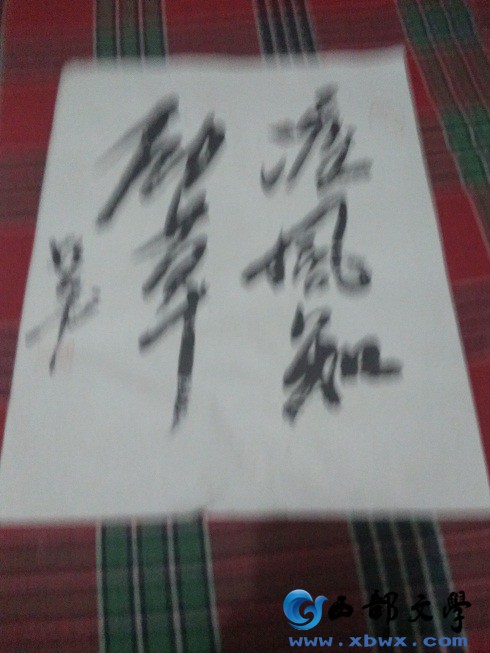 疾风知
劲草
西部文學
www.xbwx.com